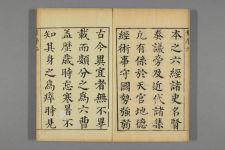 本之六經諸史名賢
奏議旁及近代諸集
凡有係於天官地德
經術事守國勢強弱
古今異宜者無不畢
載而類分之為六曹
蓋歷歲時忘寒暑不
知其身之為瘁時見